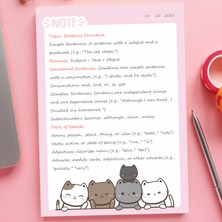 NOTE
Topic: Sentence Structure
Simple Sentences: A sentence with a subject and a
predicate (e.g., "The cat sleeps").
Formula: Subject + Verb + Object
Compound Sentences: Combine two simple sentences
with a conjunction (e.g., "I study, and he reads").
Conjunctions: and, but, or, so, yet
Complex Sentences: Contain an independent clause
and one dependent clause (e.g., "Although I was tired, I
finished my homework").
Subordinators: because, although, since, unless
Parts of Speech:
Nouns: person, place, thing, or idea (e.g., "book," "city")
Verbs: action or state of being (e.g., "run," "is")
Adjectives: describe nouns (e.g., "blue," "tall")
Adverbs: modify verbs, adjectives, or other adverbs (e.g.,
"quickly," "very")